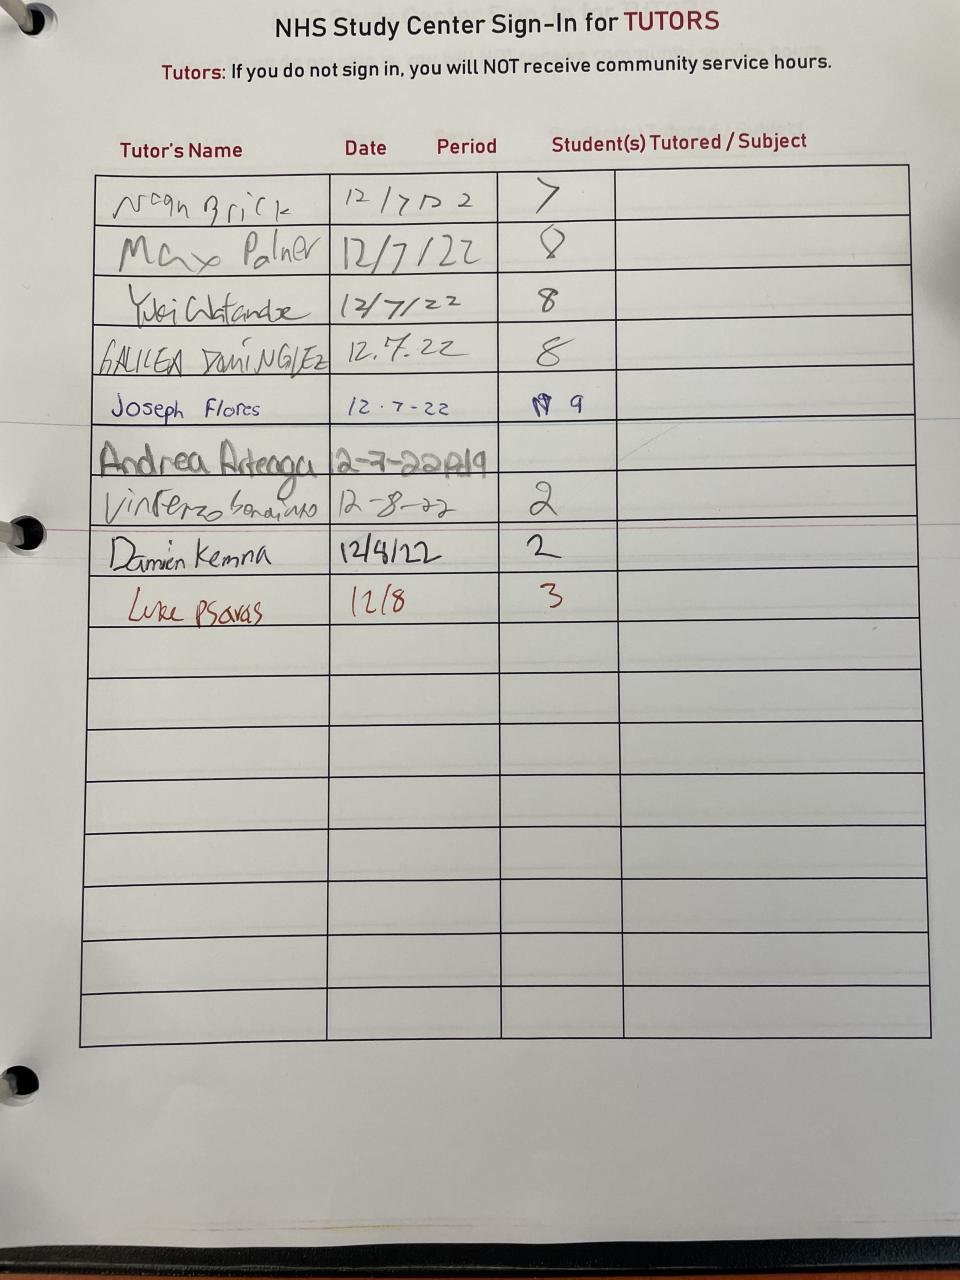 NHS Study Center Sign-In for TUTORS
Tutors: If you do not sign in, you will NOT receive community service hours.
Tutor's Name Date Period Student(s) Tutored / Subject
Brick 12/7/22 7
Max Palner 12/7/22 8
Yuki Watanabe 12/7/22 8
GALILEA DOMINGUEZ 12.7.22 8
Joseph Flores 12-7-22 9
Andrea Arteaga 12-7-22
12-8-22 2
Damien Kemna 12/8/22 2
Luke Psaras 12/8 3